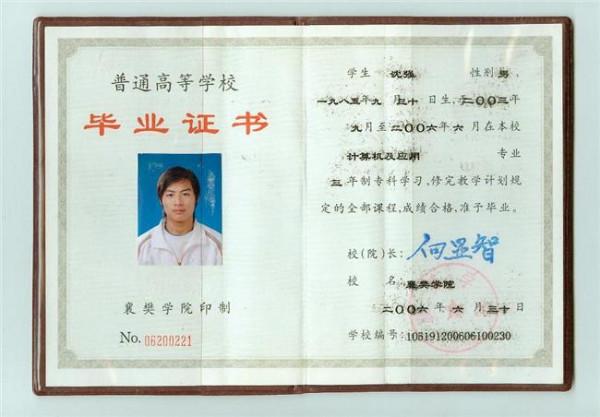 普通高等学校
毕业证书
襄樊学院印制
No. 06200221
学生 沈强 性别 男,
一九八五年九月三十日生,于二〇〇三年
九月至二〇〇六年六月在本校
计算机及应用 专业
三年制专科学习,修完教学计划规
定的全部课程,成绩合格,准予毕业。
校(院)长: 何显智
校 名: 襄樊学院
二〇〇六年 六月三十日
学校编号: 105191200606100230